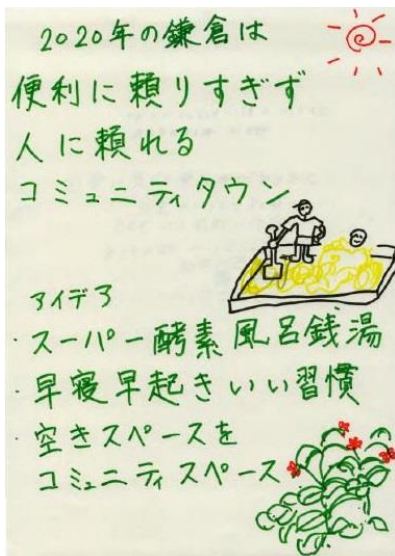 2020年の鎌倉は
便利に頼りすぎず
人に頼れる
コミュニティタウン
アイデア
・スーパー酵素風呂銭湯
・早寝早起きいい習慣
・空きスペースを
コミュニティスペース